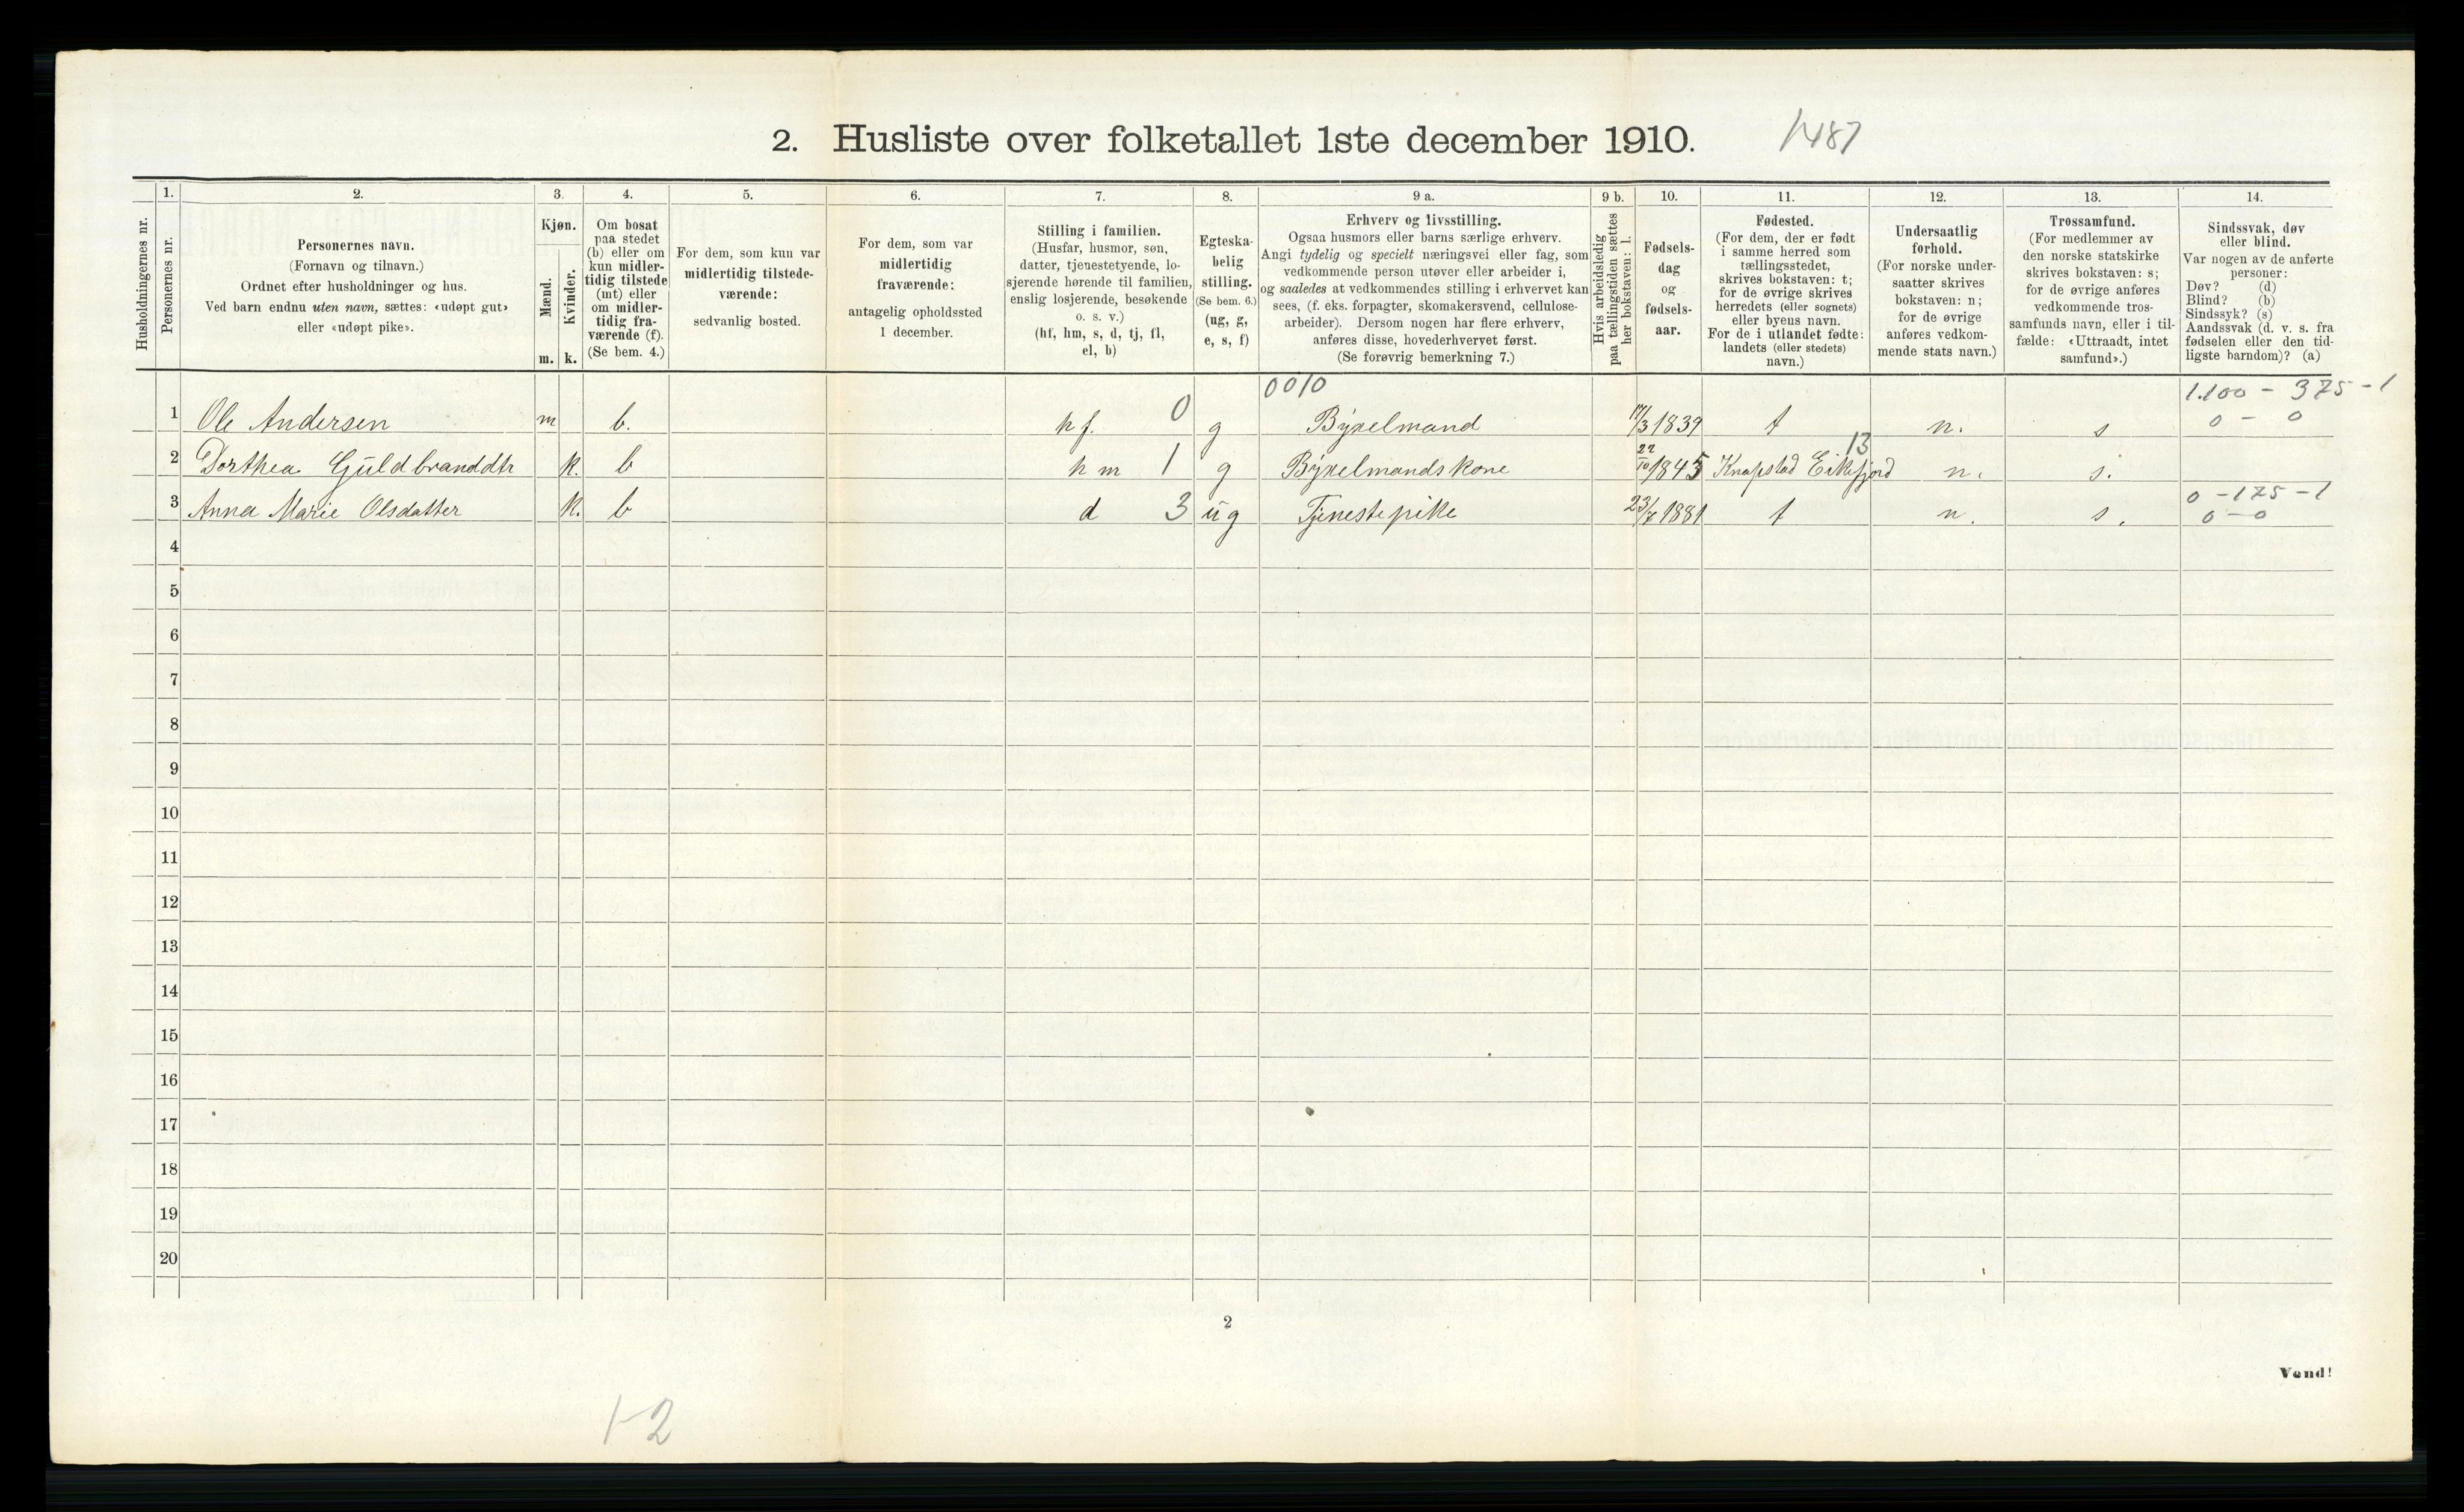 2. Husliste over folketallet 1ste december 1910. 1487
1. 2. 3. 4. 5. 6. 7. 8. 9 a. 9 b. 10. 11. 12. 13. 14.
Husholdningernes nr.
Personernes nr.
Personernes navn.
(Fornavn og tilnavn.)
Ordnet efter husholdninger og hus.
Ved barn endnu uten navn, sættes: «udøpt gut»
eller «udøpt pike».
Kjøn.
Mænd.
Kvinder.
m. k.
Om bosat
paa stedet
(b) eller om
kun midler-
tidig tilstede
(mt) eller
om midler-
tidig fra-
værende (f).
(Se bem. 4.)
For dem, som kun var
midlertidig tilstede-
værende:
sedvanlig bosted.
For dem, som var
midlertidig
fraværende:
antagelig opholdssted
1 december.
Stilling i familien.
(Husfar, husmor, søn,
datter, tjenestetyende, lo-
sjerende hørende til familien,
enslig losjerende, besøkende
o. s. v.)
(hf, hm, s, d, tj, fl,
el, b)
Egteska-
belig
stilling.
(Se bem. 6.)
(ug, g,
e, s, f)
Erhverv og livsstilling.
Ogsaa husmors eller barns særlige erhverv.
Angi tydelig og specielt næringsvei eller fag, som
vedkommende person utøver eller arbeider i,
og saaledes at vedkommendes stilling i erhvervet kan
sees, (f. eks. forpagter, skomakersvend, cellulose-
arbeider). Dersom nogen har flere erhverv,
anføres disse, hovederhvervet først.
(Se forøvrig bemerkning 7.)
Hvis arbeidsledig
paa tællingstiden sættes
her bokstaven: l.
Fødsels-
dag
og
fødsels-
aar.
Fødested.
(For dem, der er født
i samme herred som
tællingsstedet,
skrives bokstaven: t;
for de øvrige skrives
herredets (eller sognets)
eller byens navn.
For de i utlandet fødte:
landets (eller stedets)
navn.)
Undersaatlig
forhold.
(For norske under-
saatter skrives
bokstaven: n;
for de øvrige
anføres vedkom-
mende stats navn.)
Trossamfund.
(For medlemmer av
den norske statskirke
skrives bokstaven: s;
for de øvrige anføres
vedkommende tros-
samfunds navn, eller i til-
fælde: «Uttraadt, intet
samfund».)
Sindssvak, døv
eller blind.
Var nogen av de anførte
personer:
Døv? (d)
Blind? (b)
Sindssyk? (s)
Aandssvak (d. v. s. fra
fødselen eller den tid-
ligste barndom)? (a)
0010 1.100 - 375 - 1
1 Ole Andersen m b. hf. 0 g Byxelmand 17/3 1839 t n. s 0 - 0
2 Dorthea Guldbranddtr k. b hm 1 g Byxelmandskone 22/10 1845 Knapstad Eikefjord 13 n. s.
3 Anna Marie Olsdatter k. b d 3 ug Tjenestepike 23/7 1881 t n. s. 0 - 175 - 1
0 - 0
4
5
6
7
8
9
10
11
12
13
14
15
16
17
18
19
20
2
Vend!
1-2